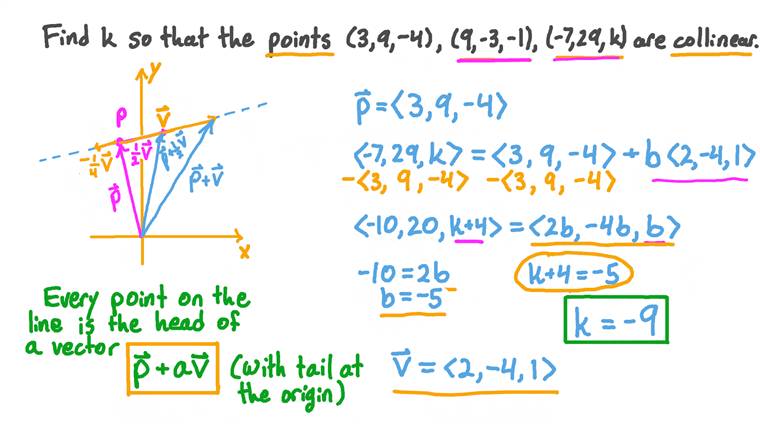 Find k so that the points (3,9,-4), (9,-3,-1), (-7,29,k) are collinear.
y
p
v⃗
-1/4 v⃗
1/2 v⃗
p⃗+1/2 v⃗
p⃗+v⃗
p⃗
x
p⃗ = ⟨3, 9, -4⟩
⟨-7, 29, k⟩ = ⟨3, 9, -4⟩ + b⟨2, -4, 1⟩
-⟨3, 9, -4⟩ -⟨3, 9, -4⟩
⟨-10, 20, k+4⟩ = ⟨2b, -4b, b⟩
-10 = 2b
b = -5
k+4 = -5
k = -9
Every point on the
line is the head of
a vector
p⃗ + av⃗
(with tail at
the origin)
v⃗ = ⟨2, -4, 1⟩